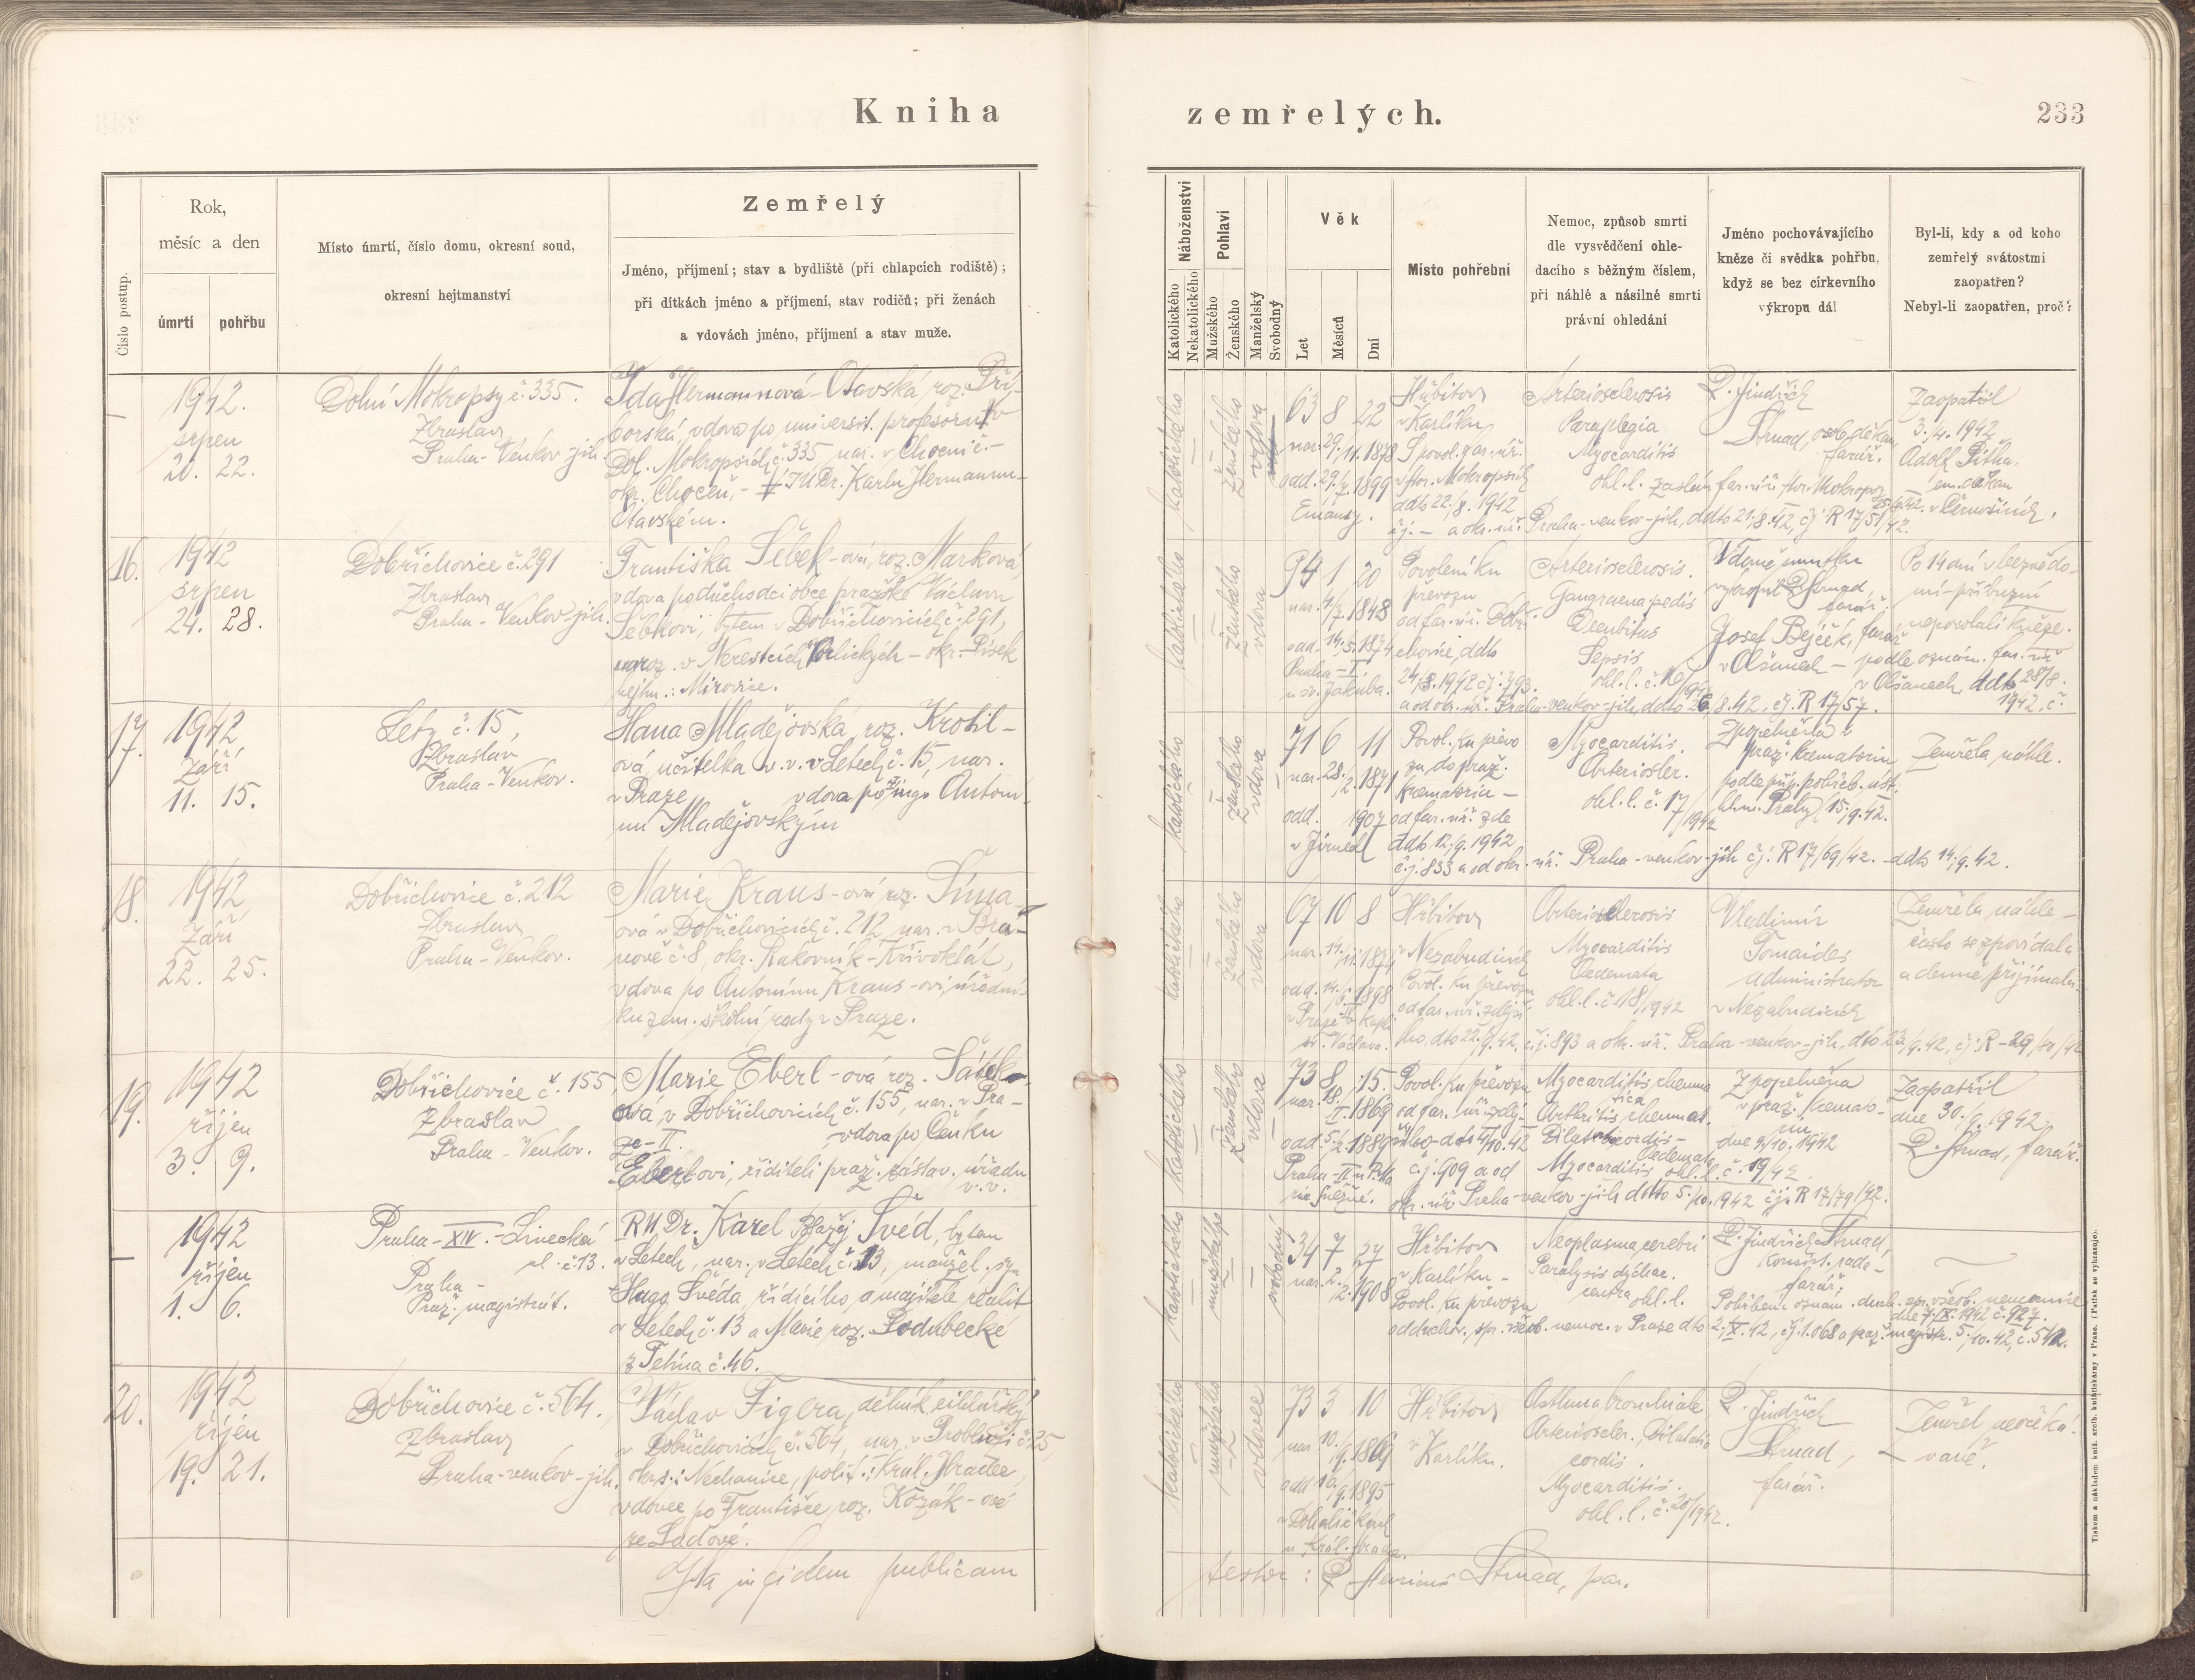 Kniha zemřelých.
233
Číslo postup.
Rok,
měsíc a den
úmrtí
pohřbu
Místo úmrtí, číslo domu, okresní soud,
okresní hejtmanství
Zemřelý
Jméno, příjmení; stav a bydliště (při chlapcích rodiště);
při dítkách jméno a příjmení, stav rodičů; při ženách
a vdovách jméno, příjmení a stav muže.
Náboženství
Katolického
Nekatolického
Pohlaví
Mužského
Ženského
Manželský
Svobodný
Věk
Let
Měsíců
Dní
Místo pohřební
Nemoc, způsob smrti
dle vysvědčení ohle-
dacího s běžným číslem,
při náhlé a násilné smrti
právní ohledání
Jméno pochovávajícího
kněze či svědka pohřbu,
když se bez církevního
výkropu dál
Byl-li, kdy a od koho
zemřelý svátostmi
zaopatřen?
Nebyl-li zaopatřen, proč?
–
1942.
srpen
20. 22.
Dolní Mokropsy č. 335.
Zbraslav
Praha-Venkov-jih.
Ida Hermannová-Otavská, roz. Pří-
borská, vdova po universit. profesoru v
Dol. Mokropsích č. 335 nar. v Chocni č. –
okr. Choceň, – JUDr. Karlu Hermannu-
Otavském.
katolického
ženského
vdova
63 8 22
nar. 29./11. 1878
odd. 29./7. 1899
Emauzy.
Hřbitov
v Karlíku
S povol. far. úř.
v Hor. Mokropsích
ddto 22./8. 1942
čj. – a okr. úř. Praha-venkov-jih, ddto 21.8.42, čj. R 17/51/42.
Arteriosclerosis
Paraplegia
Myocarditis
ohl. l. zaslán far. úři Hor. Mokropsy
P. Jindřich
Strnad, os. b. děkan,
farář.
Zaopatřil
3./4. 1942
Adolf Pitha,
em. děkan
v Černošicích.
16.
1942
srpen
24. 28.
Dobřichovice č. 291
Zbraslav
Praha-Venkov-jih.
Františka Šebek-ová, roz. Marková,
vdova po důchodci obce pražské Václavu
Šebkovi, bytem v Dobřichovicích č. 291,
naroz. v Nerestcích Orlických – okr. Písek
hejtm.: Mirovice.
katolického
ženského
vdova
94 1 20
nar. 4/7. 1848
odd. 14./5. 1874
Praha-I.
u sv. Jakuba.
Povolení ku
převozu
od far. úř. Dobři-
chovice, ddto
24./8. 1942 čj. 793.
a od okr. úř. Praha-venkov-jih, ddto 26./8.42, čj. R 17/57.
Arteriosclerosis.
Gangraena pedis
Decubitus
Sepsis
ohl. l. č. 16/1942
V domě smutku
vykropil P. Strnad,
farář.
Josef Bejček, farář
v Olšanech – podle oznám. far. úř.
v Olšanech, ddto 28/8.
1942, č.
Po 14 dní v bezvědo-
mí – příbuzní
neposlali kněze.
17.
1942
září
11. 15.
Lety č. 15,
Zbraslav
Praha-Venkov.
Hana Mladějovská, roz. Krohil-
ová, učitelka v. v. v Letech č. 15, nar.
v Praze, vdova po ingo Antoni-
nu Mladějovským
katolického
ženského
vdova
71 6 11
nar. 28./2. 1871
odd. 1907
v Jirnech
Povol. ku převo
zu do praž.
krematoria –
od far. úř. zde
ddto 12./9. 1942
č.j. 833 a od okr. úř. Praha-venkov-jih čj. R 17/69/42. – ddto 14./9.42.
Myocarditis.
Arterioskler.
ohl. l. č. 17/1942
Zpopelněna v
praž. krematoriu
podle příp. pohřeb. úst.
hl. m. Prahy 15./9.42.
Zemřela náhle.
18.
1942
září
22. 25.
Dobřichovice č. 212
Zbraslav
Praha-Venkov.
Marie Kraus-ová, roz. Šíma-
ová v Dobřichovicích č. 212, nar. v Bra-
nově č. 8, okr. Rakovník-Křivoklát,
vdova po Antonínu Kraus-ovi, úředni-
ku zem. školní rady v Praze.
katolického
ženského
vdova
67 10 8
nar. 14./11. 1874
odd. 14./6. 1898
v Praze v kapli
sv. Václava.
Hřbitov
v Nezabudicích
Povol. ku převozu
od far. úř. zdejší-
ho, dto 22./9.42, č.j. 893 a okr. úř. Praha-venkov-jih, dto 23./9.42, čj. R-29/
Arteriosclerosis
Myocarditis
Oedemata
ohl. l. č. 18/1942
Vladimír
Tomaides
administrátor
v Nezabudicích
Zemřela náhle –
často se zpovídala
a denně přijímala.
19.
1942
říjen
3. 9.
Dobřichovice č. 155
Zbraslav
Praha-Venkov.
Marie Eberl-ová roz. Šátek-
ová, v Dobřichovicích č. 155, nar. v Pra-
ze-II. vdova po Čeňku
Eberlovi, řediteli praž. zástav. úřadu
v. v.
katolického
ženského
vdova
73 8 15.
nar. 18./I. 1869
odd. 5./2. 1889
Praha-II u P. Ma
rie Sněžné.
Povol. ku převozu
od far. úř. zdej-
šího – dto 4/10.42
č.j. 909 a od
okr. úř. Praha-venkov-jih ddto 5./10.1942 čj. R 17/79/42.
Myocarditis rheuma
tica
Arthritis rheumat.
Dilatatio cordis –
Oedemata
Myocarditis ohl. l. č. 19/42.
Zpopelněna
v praž. kremato-
riu
dne 9/10. 1942
Zaopatřil
dne 30./9. 1942
P. Strnad, farář.
–
1942
říjen
1. 6.
Praha-XIV.-Linecká
ul. č. 13.
Praha-
Praž. magistrát.
RNDr. Karel Blažej Švéd, bytem
v Letech, nar. v Letech č. 13, manžel. syn
Hugo Švéda, řídícího a majitele realit
v Letech č. 13 a Marie, roz. Podubecké
z Tetína č. 46.
katolického
mužského
svobodný
34 7 27
nar. 2./2. 1908
Hřbitov
v Karlíku –
Povol. ku převozu
od duchov. sp. všeob. nemoc. v Praze dto 2./X.42, čj. 1.068 a praž. magistr. 5./10.42, č. 542.
Neoplasma cerebri
Paralysis dýchac.
centra ohl. l.
P. Jindřich Strnad,
konsist. rada –
farář,
Pohřben. oznám. duch. spr. všeob. nemocnice
dne 7./IX. 1942 č. 927.
20.
1942
říjen
19. 21.
Dobřichovice č. 564.
Zbraslav
Praha-venkov-jih.
Václav Figera, dělník cihlářský
v Dobřichovicích č. 564, nar. v Probluzi č. 25,
okrs.: Nechanice, polit.: Král. Hradec,
vdovec po Františce roz. Kozák-ové
ze Sadové.
katolického
mužského
vdovec
73 3 10
nar. 10./9. 1869
odd. 10./9. 1895
v Dohaličkách
u Král. Hradce.
Hřbitov
v
Karlíku.
Asthma bronchiale,
Arterioscler., Dilatatio
cordis.
Myocarditis.
ohl. l. č. 20/1942.
P. Jindřich
Strnad,
farář.
Zemřel neočeká-
vaně.
Ita in fidem publicam
testor: P. Henricus Strnad, par.
Tiskem a nákladem knih. arcib. knihtiskárny v Praze. (Patisk se vyhrazuje)